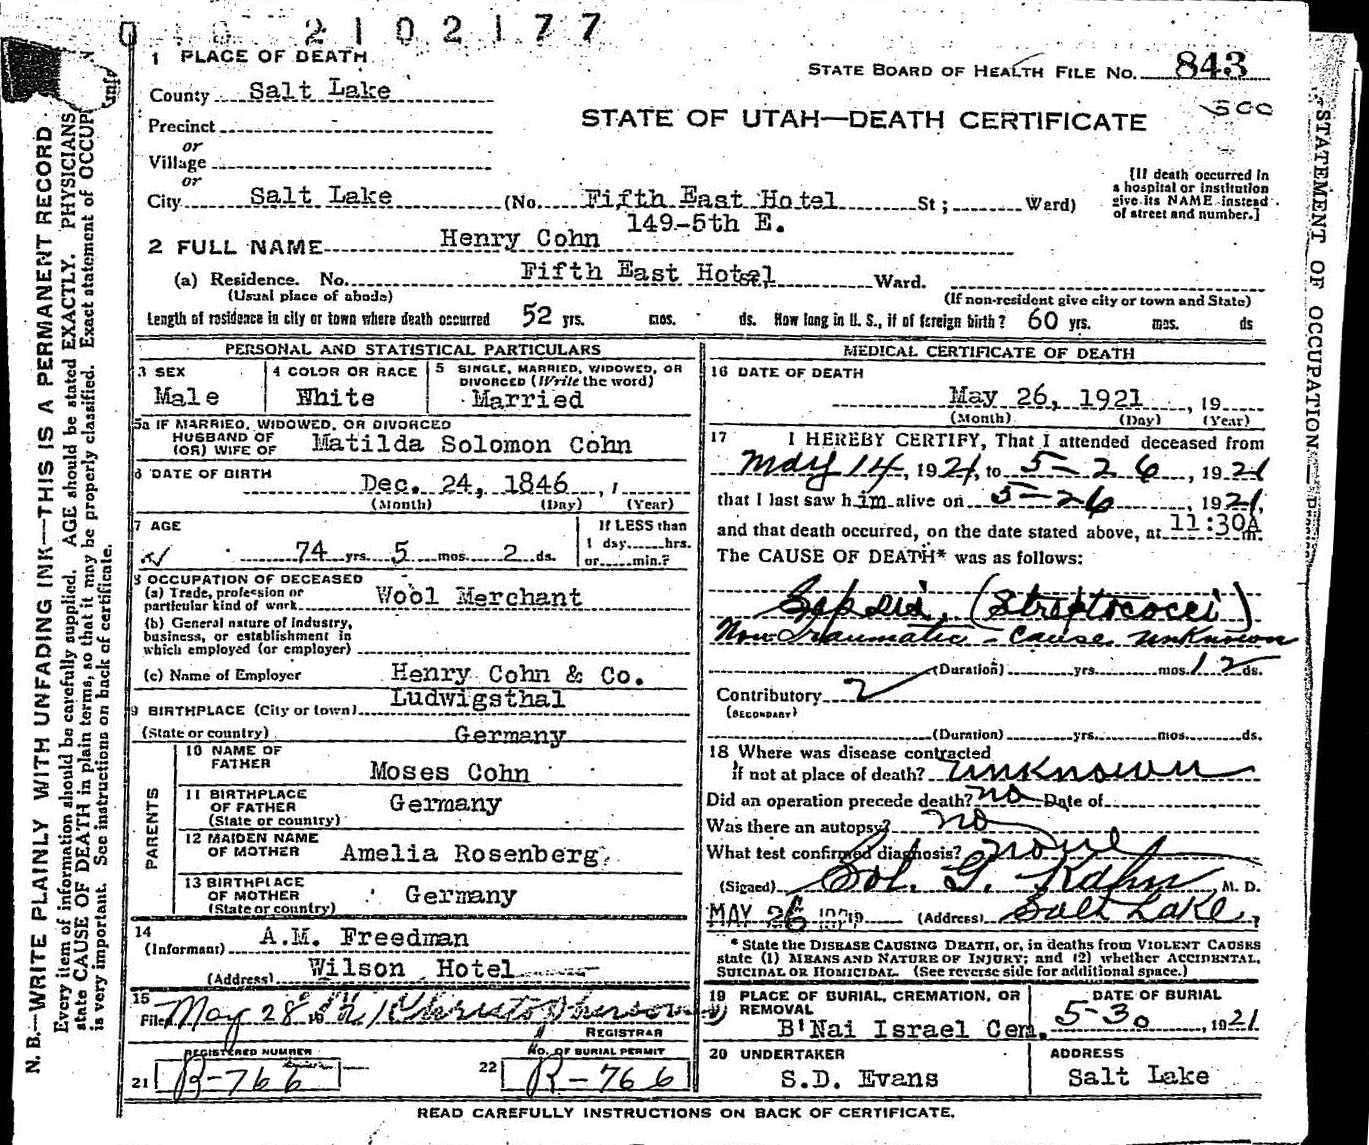 2102177
1 PLACE OF DEATH
STATE BOARD OF HEALTH FILE NO. 843
County Salt Lake
500
STATE OF UTAH—DEATH CERTIFICATE
Precinct
or
Village
or
City Salt Lake (No. Fifth East Hotel St; Ward)
[If death occurred in
a hospital or institution
give its NAME instead
of street and number.]
149-5th E.
2 FULL NAME Henry Cohn
(a) Residence. No. Fifth East Hotel Ward.
(Usual place of abode) (If non-resident give city or town and State)
Length of residence in city or town where death occurred 52 yrs. mos. ds. How long in U. S., if of foreign birth? 60 yrs. mos. ds
PERSONAL AND STATISTICAL PARTICULARS
3 SEX
Male
4 COLOR OR RACE
White
5 SINGLE, MARRIED, WIDOWED, OR
DIVORCED (Write the word)
Married
5a IF MARRIED, WIDOWED, OR DIVORCED
HUSBAND OF
(OR) WIFE OF Matilda Solomon Cohn
6 DATE OF BIRTH
Dec. 24, 1846
(Month) (Day) (Year)
7 AGE
74 yrs. 5 mos. 2 ds.
If LESS than
1 day hrs.
or min.?
8 OCCUPATION OF DECEASED
(a) Trade, profession or
particular kind of work Wool Merchant
(b) General nature of industry,
business, or establishment in
which employed (or employer)
(c) Name of Employer Henry Cohn & Co.
9 BIRTHPLACE (City or town) Ludwigsthal
(State or country) Germany
PARENTS
10 NAME OF
FATHER Moses Cohn
11 BIRTHPLACE
OF FATHER Germany
(State or country)
12 MAIDEN NAME
OF MOTHER Amelia Rosenberg
13 BIRTHPLACE
OF MOTHER Germany
(State or country)
14
(Informant) A.M. Freedman
(Address) Wilson Hotel
15
Filed May 28 19
REGISTRAR
REGISTERED NUMBER
21 R-766
NO. OF BURIAL PERMIT
22 R-766
MEDICAL CERTIFICATE OF DEATH
16 DATE OF DEATH
May 26, 1921, 19
(Month) (Day) (Year)
17 I HEREBY CERTIFY, That I attended deceased from
May 14, 1921, to 5-26, 1921
that I last saw him alive on 5-26, 1921,
and that death occurred, on the date stated above, at 11:30A m.
The CAUSE OF DEATH* was as follows:
Sepsis. (Streptococci)
Non Traumatic - cause unknown
(Duration) yrs. mos. 12 ds.
Contributory
(SECONDARY)
(Duration) yrs. mos. ds.
18 Where was disease contracted
if not at place of death? unknown
Did an operation precede death? no Date of
Was there an autopsy? no
What test confirmed diagnosis? none
(Signed) Sol. G. Kahn M. D.
MAY 26 (Address) Salt Lake
* State the DISEASE CAUSING DEATH, or, in deaths from VIOLENT CAUSES
state (1) MEANS AND NATURE OF INJURY; and (2) whether ACCIDENTAL,
SUICIDAL OR HOMICIDAL. (See reverse side for additional space.)
19 PLACE OF BURIAL, CREMATION, OR
REMOVAL
B'Nai Israel Cem.
DATE OF BURIAL
5-30, 1921
20 UNDERTAKER
S.D. Evans
ADDRESS
Salt Lake
READ CAREFULLY INSTRUCTIONS ON BACK OF CERTIFICATE.
N. B.—WRITE PLAINLY WITH UNFADING INK—THIS IS A PERMANENT RECORD
Every item of information should be carefully supplied. AGE should be stated EXACTLY. PHYSICIANS
state CAUSE OF DEATH in plain terms, so that it may be properly classified. Exact statement of OCCUP
is very important. See instructions on back of certificate.
STATEMENT OF OCCUPATION